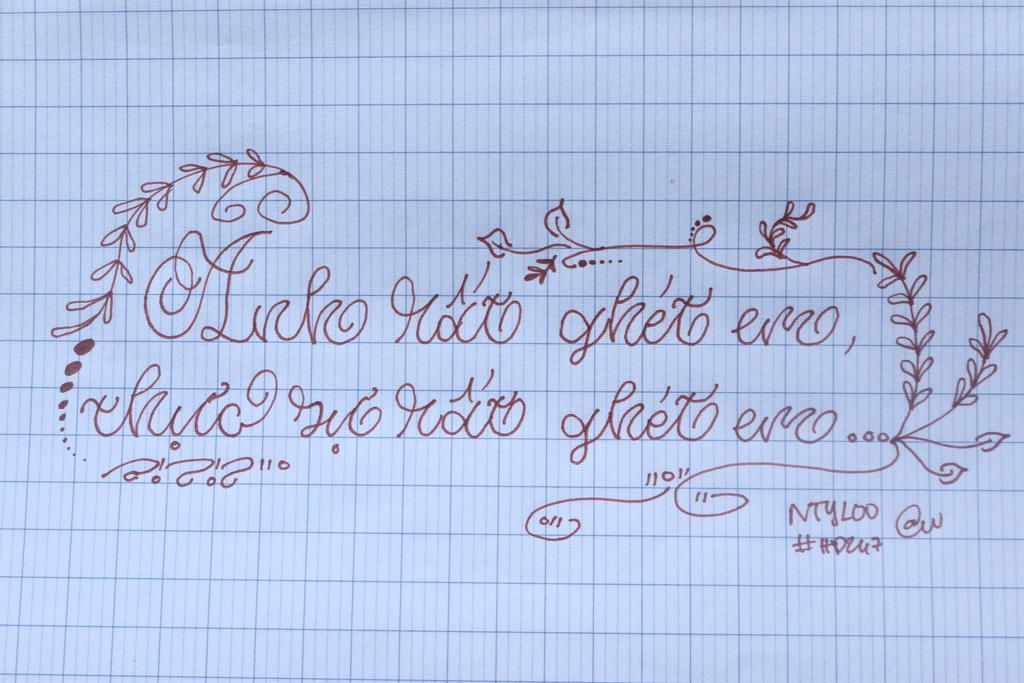 Anh rất ghét em,
thực sự rất ghét em...
NTYLOO @w
#HD247